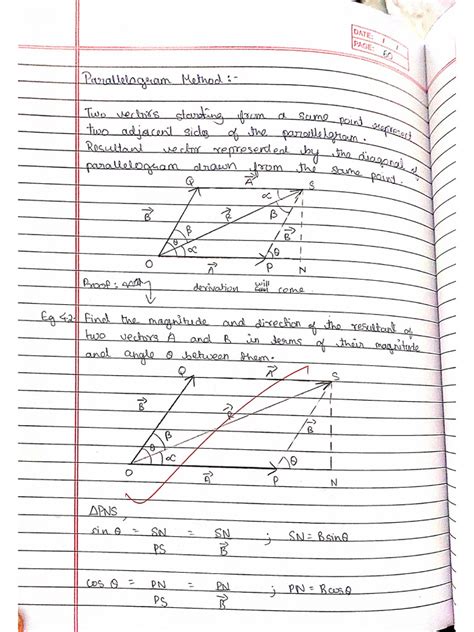 DATE: / /
PAGE: 60
Parallelogram Method :-
Two vectors starting from a same point represent
two adjacent side of the parallelgram.
Resultant vector represented by the diagonal of
parallelogram drawn from the same point.
Q A S
α
B R β B
β
θ
α θ
O A P N
Proof:
derivation will come
Eg 4.2 Find the magnitude and direction of the resultant of
two vectors A and B in terms of their magnitude
and angle θ between them.
Q A S
B R B
β
θ
α θ
O A P N
ΔPNS,
sin θ = SN/PS = SN/B ; SN = Bsinθ
cos θ = PN/PS = PN/B ; PN = Bcosθ